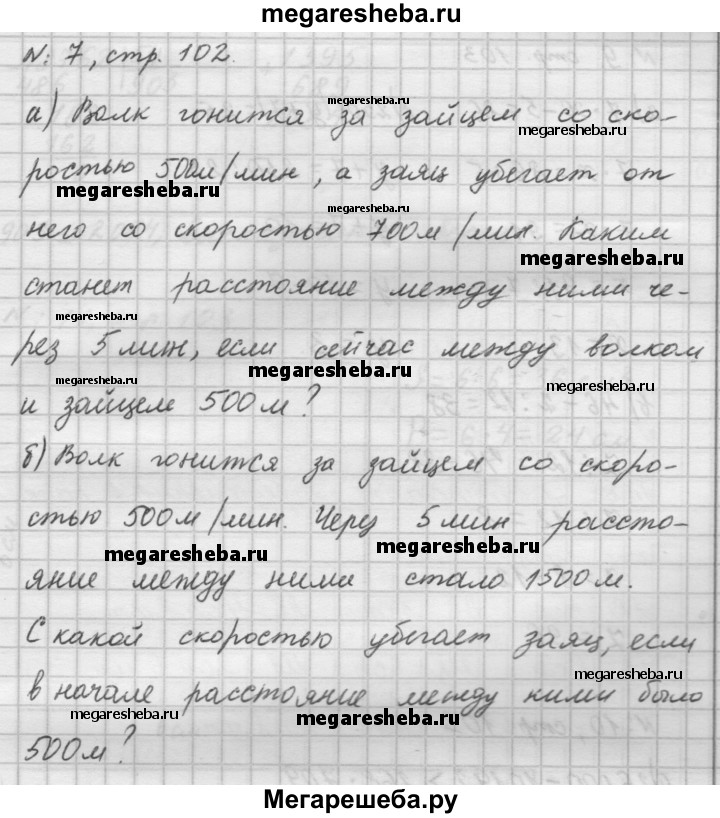 megaresheba.ru
N: 7, стр. 102.
а) Волк гонится за зайцем со ско-
megaresheba.ru
megaresheba.ru
ростью 500м/мин, а заяц убегает от
megaresheba.ru
megaresheba.ru
него со скоростью 700м/мин. Каким
megaresheba.ru
станет расстояние между ними че-
megaresheba.ru
рез 5 мин, если сейчас между волком
megaresheba.ru
megaresheba.ru
megaresheba.ru
и зайцем 500м?
б) Волк гонится за зайцем со скоро-
стью 500м/мин. Через 5 мин рассто-
megaresheba.ru
megaresheba.ru
яние между ними стало 1500м.
С какой скоростью убегает заяц, если
megaresheba.ru
в начале расстояние между ними было
megaresheba.ru
megaresheba.ru
500м?
Мегарешеба.ру